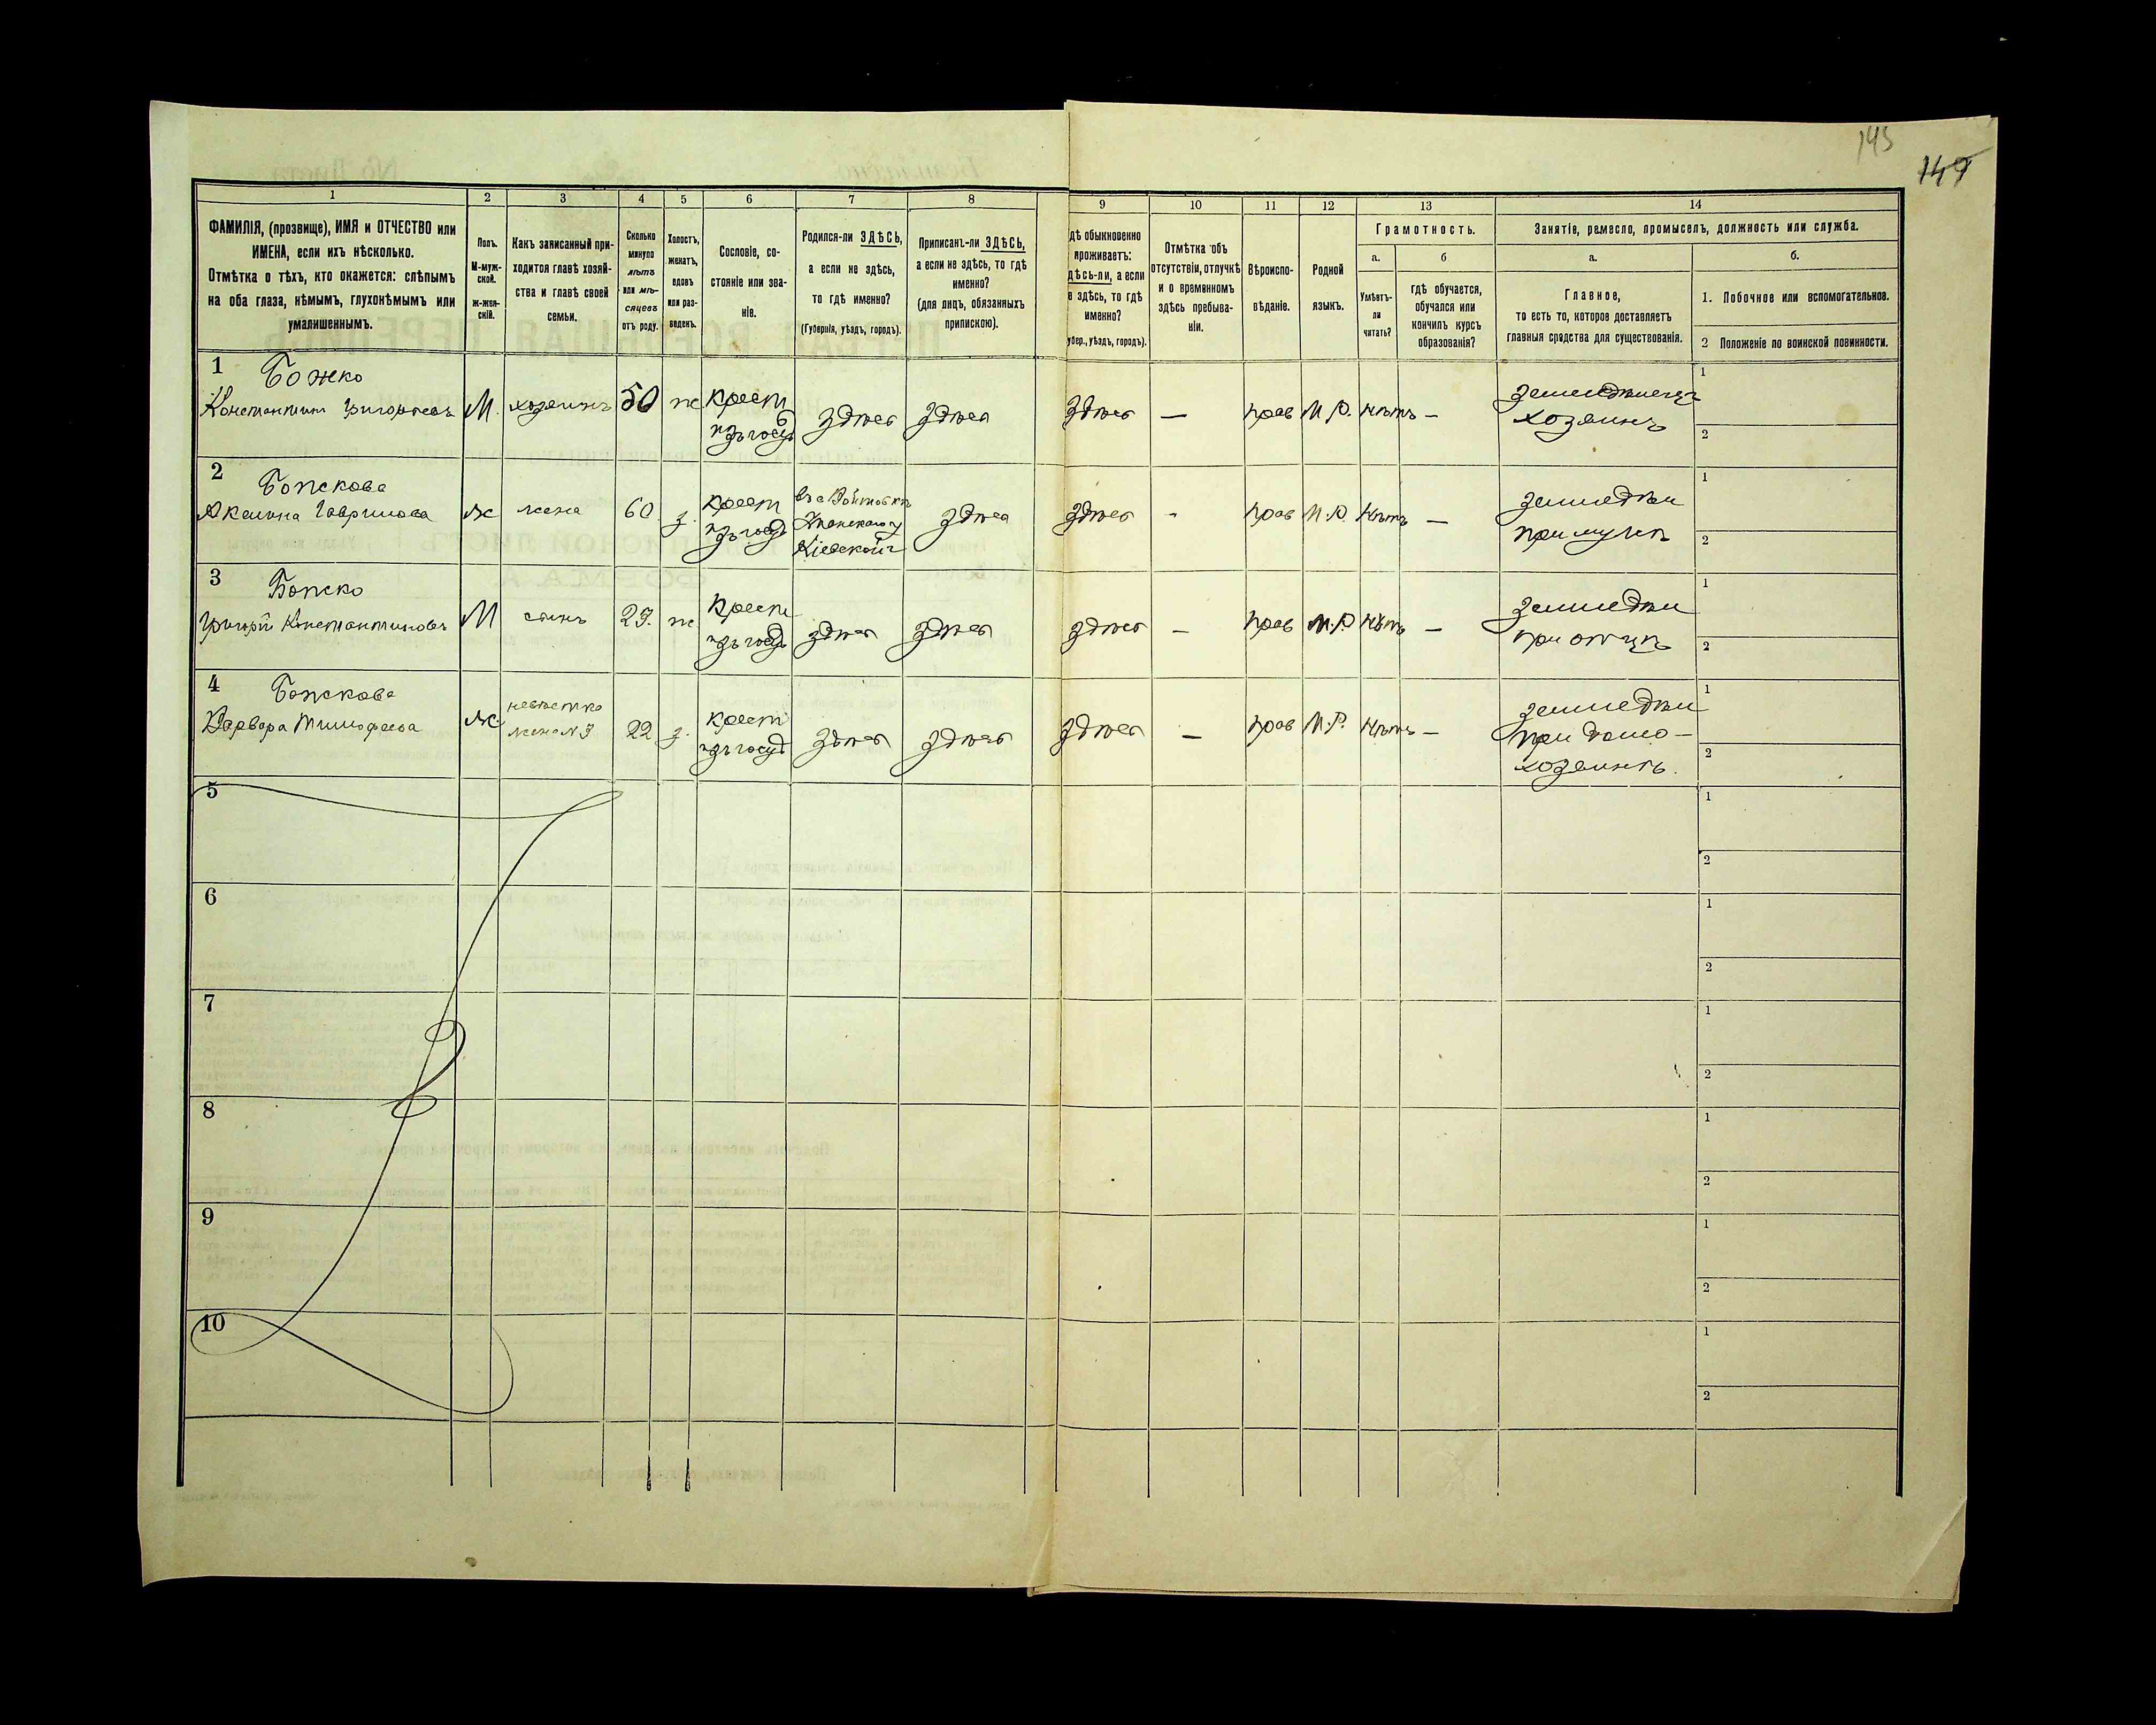 145
149
1
2
3
4
5
6
7
8
9
10
11
12
13
14
ФАМИЛІЯ, (прозвище), ИМЯ и ОТЧЕСТВО или
ИМЕНА, если ихъ нѣсколько.
Отмѣтка о тѣхъ, кто окажется: слѣпымъ
на оба глаза, нѣмымъ, глухонѣмымъ или
умалишеннымъ.
Полъ.
М-муж-
ской.
ж-жен-
скій.
Какъ записанный при-
ходится главѣ хозяй-
ства и главѣ своей
семьи.
Сколько
минуло
лѣтъ
или мѣ-
сяцевъ
отъ роду.
Холостъ,
женатъ,
вдовъ
или раз-
веденъ.
Сословіе, со-
стояніе или зва-
ніе.
Родился-ли ЗДѢСЬ,
а если не здѣсь,
то гдѣ именно?
(Губернія, уѣздъ, городъ).
Приписанъ-ли ЗДѢСЬ,
а если не здѣсь, то гдѣ
именно?
(для лицъ, обязанныхъ
припискою).
дѣ обыкновенно
проживаетъ:
дѣсь-ли, а если
е здѣсь, то гдѣ
именно?
убер., уѣздъ, городъ).
Отмѣтка объ
отсутствіи, отлучкѣ
и о временномъ
здѣсь пребыва-
ніи.
Вѣроиспо-
вѣданіе.
Родной
языкъ.
Грамотность.
а.
б
Умѣетъ-
ли
читать?
гдѣ обучается,
обучался или
кончилъ курсъ
образованія?
Занятіе, ремесло, промыселъ, должность или служба.
а.
б.
Главное,
то есть то, которое доставляетъ
главныя средства для существованія.
1. Побочное или вспомогательное.
2 Положеніе по воинской повинности.
1
Божко
Константинъ Григорьевъ
М.
хозяинъ
50
ж
крест
изъ госуд
здѣсь
здѣсь
здѣсь
—
прав
М.Р.
нѣтъ
—
земледѣлецъ
хозяинъ
1
2
2
Божкова
Акелина Гаврилова
ж
жена
60
з.
крест
изъ госуд
Кіевской г
здѣсь
здѣсь
-
прав
М.Р.
нѣтъ
—
земледѣл
при мужѣ
1
2
3
Божко
Григорій Константиновъ
М
сынъ
27.
ж
крест
изъ госуд
здѣсь
здѣсь
здѣсь
—
прав
М.Р
нѣтъ
—
земледѣл
при отцѣ
1
2
4
Божкова
Варвара Тимофеева
ж.
невѣстка
жена №3
22
з.
крест
изъ госуд
здѣсь
здѣсь
здѣсь
—
прав
М.Р.
нѣтъ
—
земледѣл
при домо-
хозяинѣ.
1
2
5
1
2
6
1
2
7
1
2
8
1
2
9
1
2
10
1
2